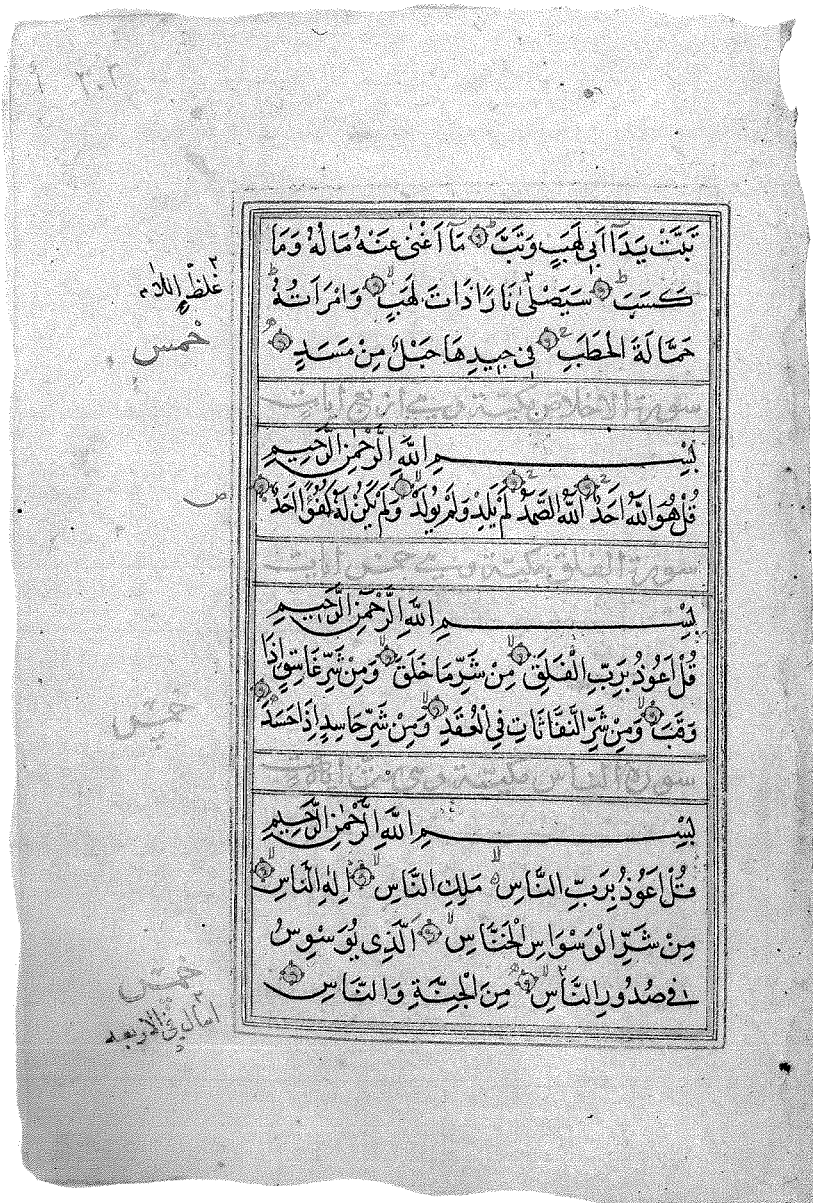 ٣٠٢ أ
تَبَّتْ يَدَٓا اَبٖى لَهَبٍ وَتَبَّ مَٓا اَغْنٰى عَنْهُ مَالُهُ وَمَا
كَسَبَ سَيَصْلٰى نَارًا ذَاتَ لَهَبٍ وَامْرَاَتُهُ
حَمَّالَةَ الْحَطَبِ فٖى جٖيدِهَا حَبْلٌ مِنْ مَسَدٍ
غلظ اللام
خمس
سورة الاخلاص مكية وهي اربع ايات
بِسْمِ اللّٰهِ الرَّحْمٰنِ الرَّحٖيمِ
قُلْ هُوَ اللّٰهُ اَحَدٌ اَللّٰهُ الصَّمَدُ لَمْ يَلِدْ وَلَمْ يُولَدْ وَلَمْ يَكُنْ لَهُ كُفُوًا اَحَدٌ
ص
سورة الفلق مكية وهي خمس ايات
بِسْمِ اللّٰهِ الرَّحْمٰنِ الرَّحٖيمِ
قُلْ اَعُوذُ بِرَبِّ الْفَلَقِ مِنْ شَرِّ مَا خَلَقَ وَمِنْ شَرِّ غَاسِقٍ اِذَا
وَقَبَ وَمِنْ شَرِّ النَّفَّاثَاتِ فِى الْعُقَدِ وَمِنْ شَرِّ حَاسِدٍ اِذَا حَسَدَ
خمس
سورة الناس مكية وهي ست ايات
بِسْمِ اللّٰهِ الرَّحْمٰنِ الرَّحٖيمِ
قُلْ اَعُوذُ بِرَبِّ النَّاسِ مَلِكِ النَّاسِ اِلٰهِ النَّاسِ
مِنْ شَرِّ الْوَسْوَاسِ الْخَنَّاسِ اَلَّذٖى يُوَسْوِسُ
فٖى صُدُورِ النَّاسِ مِنَ الْجِنَّةِ وَالنَّاسِ
خمس
امال في الاربعه